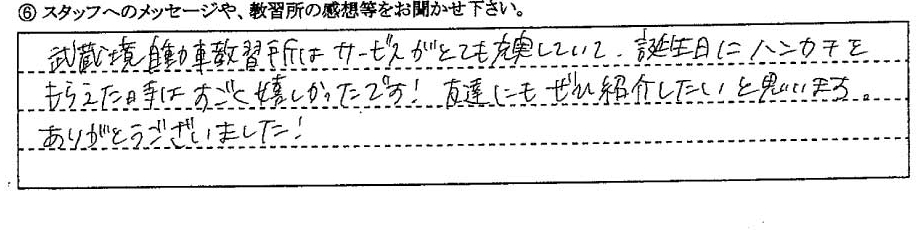 ⑥ スタッフへのメッセージや、教習所の感想等をお聞かせ下さい。
武蔵境自動車教習所はサービスがとても充実していて、誕生日にハンカチを
もらえた時はすごく嬉しかったです！ 友達にもぜひ紹介したいと思います。
ありがとうございました！